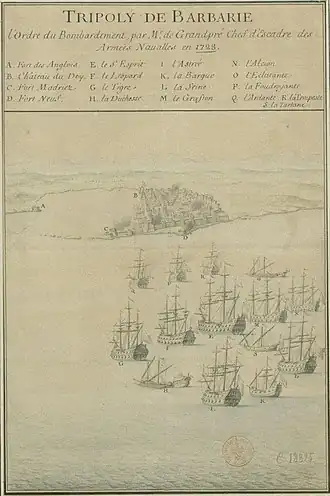 TRIPOLY DE BARBARIE
l'Ordre du Bombardiment par Mr. de Grandpré Chef d'Escadre des
Armées Navalles en 1728.
A Fort des Anglois E le St. Esprit I l'Astrée N l'Alcion
B l'Château du Dey F le Léopard K la Barque O l'Eclatante
C Fort Madriet G le Tigre L la Seine P la Foudroyante
D Fort Neuf H la Duchesse M le Gryffon Q l'Ardante R la Tempeste
S la Tartane
A
B
C
D
G
H
L
K
S